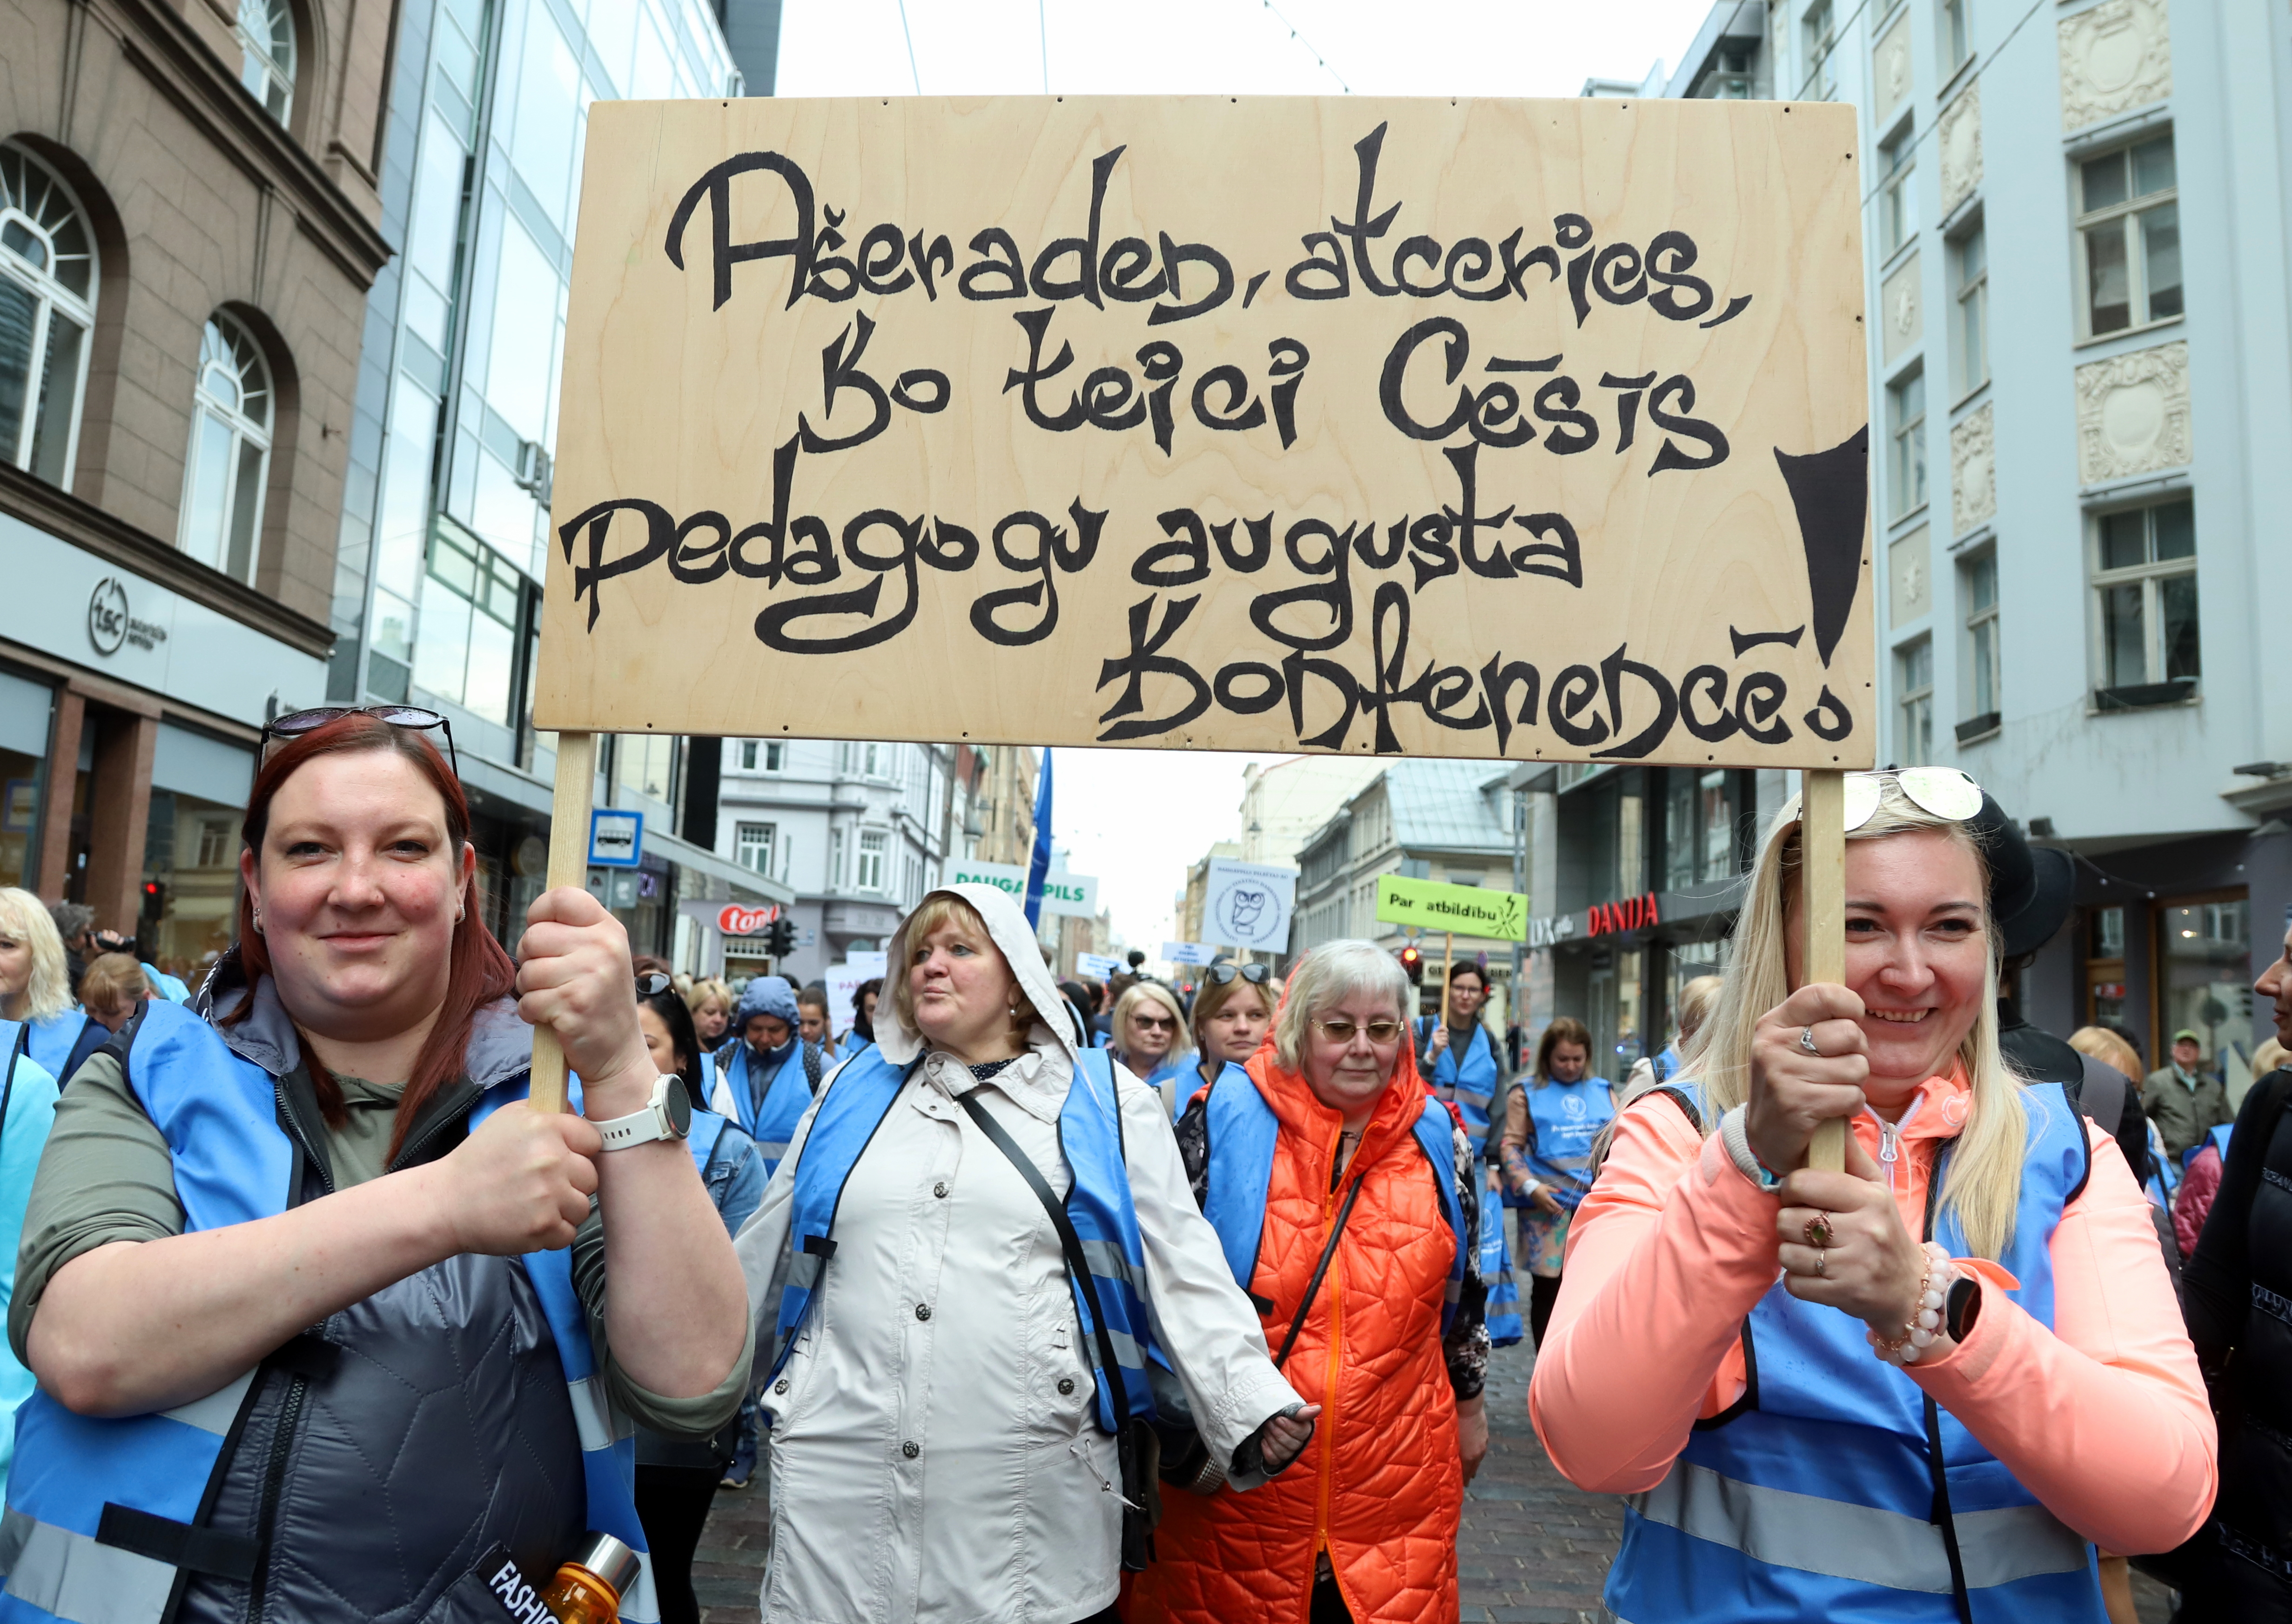 Ašeraden, atceries,
ko teici Cēsīs
pedagogu augusta
konferencē!
tsc
DAUGAVPILS
Par atbildību
top!
DANIJA
FASHIO